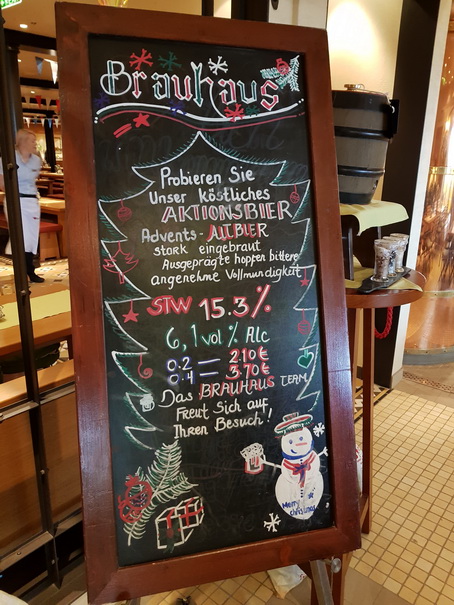 Brauhaus
Probieren Sie
Unser köstliches
AKTIONSBIER
Advents-ALTBIER
stark eingebraut
Ausgeprägte hopfen bittere
angenehme Vollmundigkeit
STW 15.3%
6,1 vol % Alc
0.2 = 2.10 €
0.4 = 3.70 €
Das BRAUHAUS TEAM
Freut Sich auf
Ihren Besuch!
Merry
christmas